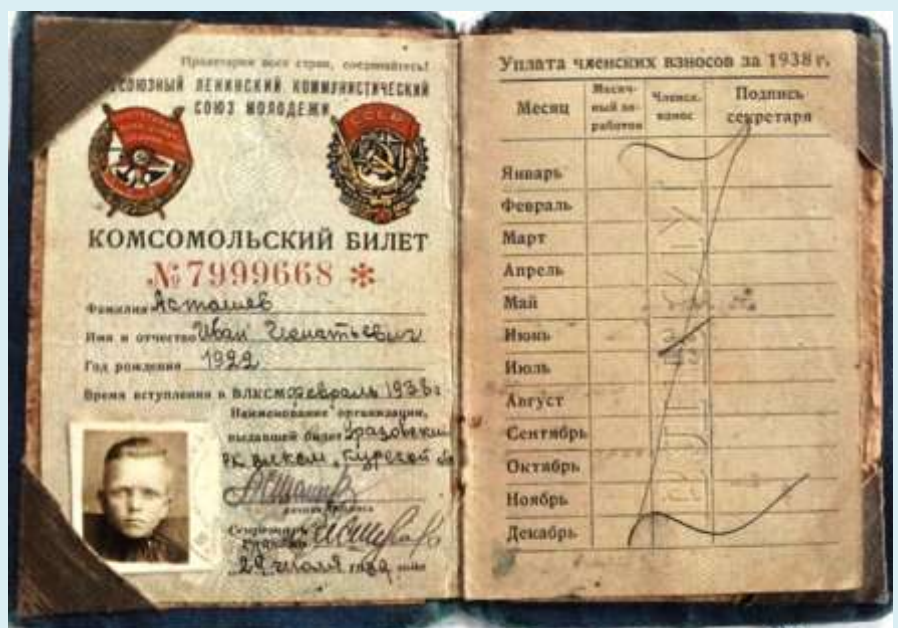 Пролетарии всех стран, соединяйтесь!
ВСЕСОЮЗНЫЙ ЛЕНИНСКИЙ КОММУНИСТИЧЕСКИЙ
СОЮЗ МОЛОДЕЖИ
СССР
КОМСОМОЛЬСКИЙ БИЛЕТ
№ 7999668 *
Фамилия Асташев
Имя и отчество Иван Игнатьевич
Год рождения 1922
Время вступления в ВЛКСМ февраль 1938 г
Наименование организации,
выдавшей билет Уразовский
РК ВЛКСМ, Курской
личная подпись
Секретарь
29 июля года
Уплата членских взносов за 1938 г.
Месяц
Месяч-
ный за-
работок
Членск.
взнос
Подпись
секретаря
Январь
Февраль
Март
Апрель
Май
Июнь
Июль
Август
Сентябрь
Октябрь
Ноябрь
Декабрь